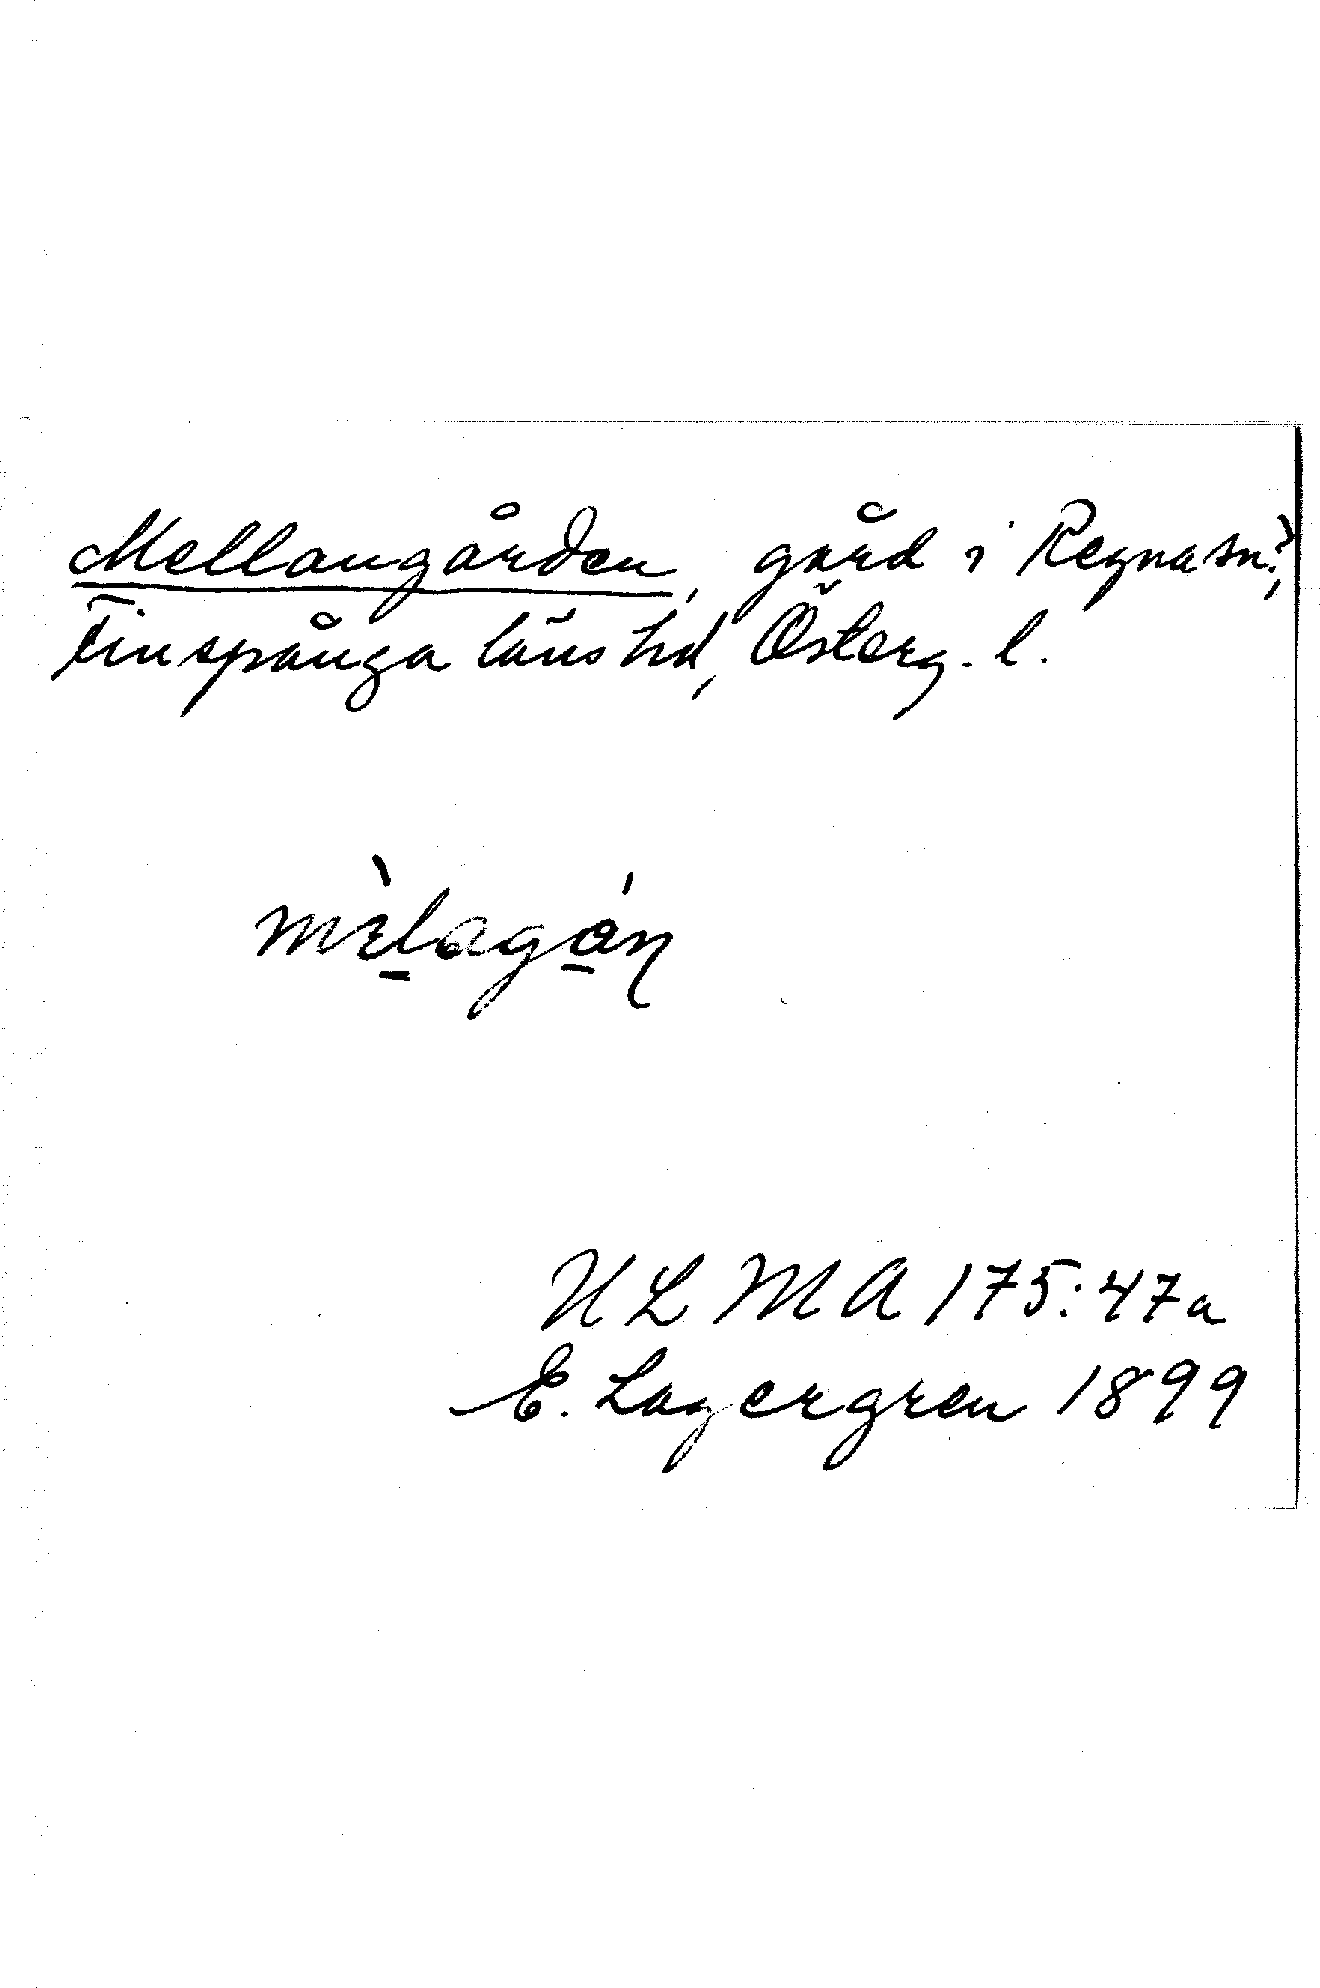 Mellangården, gård i Regna sn?,
Finspånga läns hd, Österg. l.
mὲl̠agán̠
ULMA 175:47a
E. Lagergren 1899